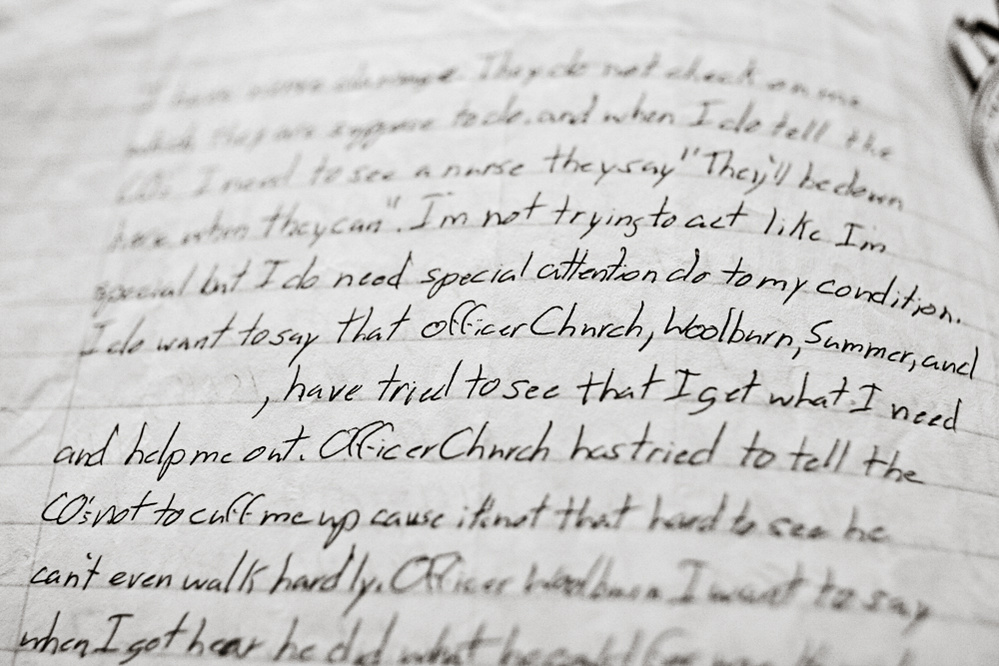 I have nerve damage. They do not check on me
which they are suppose to do. and when I do tell the
CO's I need to see a nurse they say "They'll be down
here when they can". I'm not trying to act like I'm
special but I do need special attention do to my condition.
I do want to say that officer Church, Woolburn, Summer, and
, have tried to see that I get what I need
and help me out. Officer Church has tried to tell the
CO's not to cuff me up cause it's not that hard to see he
can't even walk hardly. Officer Woolburn I want to say
when I got hear he did what he could for me